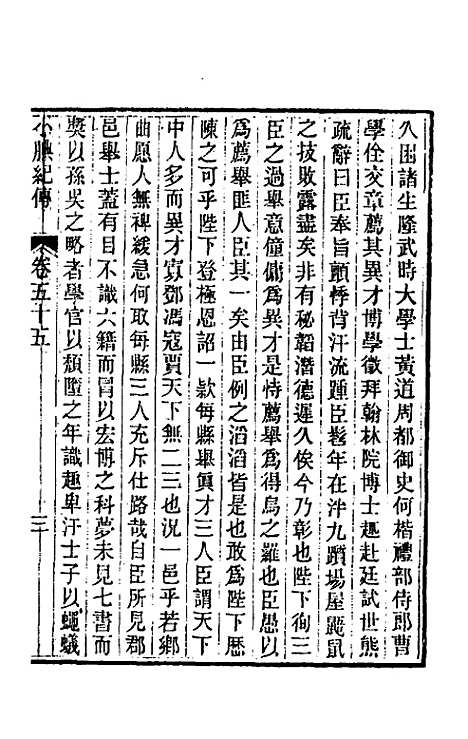 久困諸生隆武時大學士黃道周都御史何楷禮部侍郎曹
學佺交章薦其異才博學徵拜翰林院博士趣赴廷試世熊
疏辭曰臣奉旨顫悸背汗流踵臣髫年在泮九躓場屋鼫鼠
之技敗露盡矣非有秘韜潛德遲久俟今乃彰也陛下徇三
臣之過舉意僮傭為異才是恃薦舉為得鳥之羅也臣愚以
為薦舉匪人臣其一矣由臣例之滔滔皆是也敢為陛下歷
陳之可乎陛下登極恩詔一欵每縣舉眞才三人臣謂天下
中人多而異才寡鄧馮寇賈天下無二三也況一邑乎若鄉
曲愿人無裨緩急何取每縣三人充斥仕路哉自臣所見郡
邑舉士蓋有目不識六籍而冒以宏博之科夢未見七書而
獎以孫吳之略者學官以頹墮之年識趣卑汙士子以蠅蟻
小腆紀傳 卷五十五 三